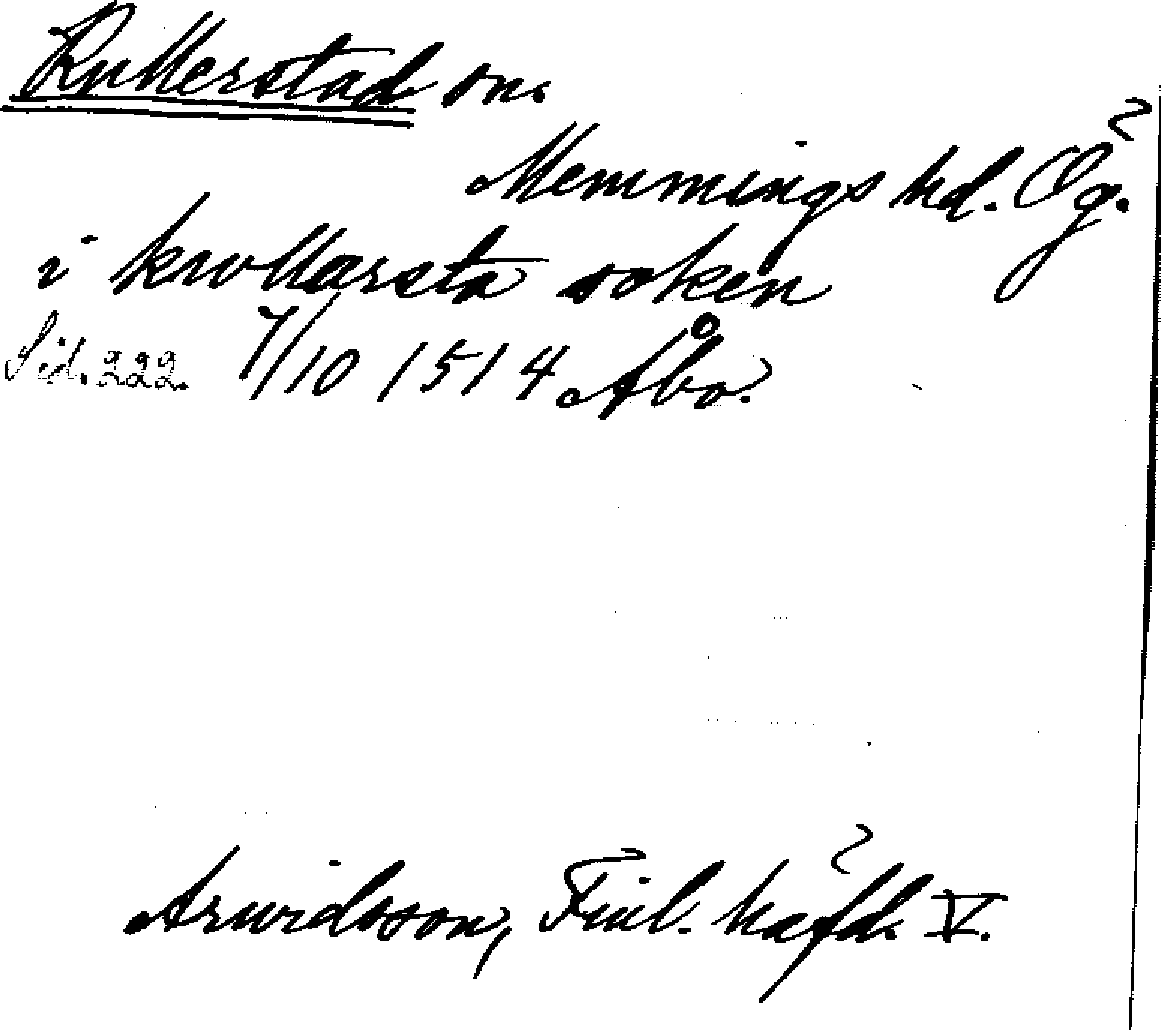 Kullerstad sn.
Memmings hd. Ög.
i kwllarsta soken
Sid. 222. 7/10 1514 Åbo.
Arwidsson, Finl. häfd. V.